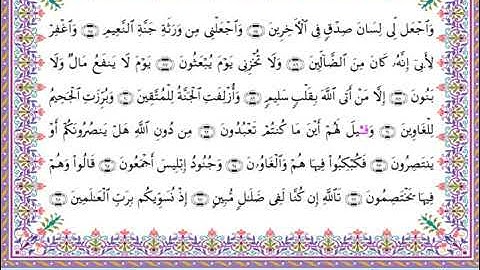 وَٱجْعَل لِّى لِسَانَ صِدْقٍ فِى ٱلْءَاخِرِينَ ﴿٨٤﴾ وَٱجْعَلْنِى مِن وَرَثَةِ جَنَّةِ ٱلنَّعِيمِ ﴿٨٥﴾ وَٱغْفِرْ
لِأَبِىٓ إِنَّهُۥ كَانَ مِنَ ٱلضَّآلِّينَ ﴿٨٦﴾ وَلَا تُخْزِنِى يَوْمَ يُبْعَثُونَ ﴿٨٧﴾ يَوْمَ لَا يَنفَعُ مَالٌ وَلَا
بَنُونَ ﴿٨٨﴾ إِلَّا مَنْ أَتَى ٱللَّهَ بِقَلْبٍ سَلِيمٍ ﴿٨٩﴾ وَأُزْلِفَتِ ٱلْجَنَّةُ لِلْمُتَّقِينَ ﴿٩٠﴾ وَبُرِّزَتِ ٱلْجَحِيمُ
لِلْغَاوِينَ ﴿٩١﴾ وَقِيلَ لَهُمْ أَيْنَ مَا كُنتُمْ تَعْبُدُونَ ﴿٩٢﴾ مِن دُونِ ٱللَّهِ هَلْ يَنصُرُونَكُمْ أَوْ
يَنتَصِرُونَ ﴿٩٣﴾ فَكُبْكِبُوا۟ فِيهَا هُمْ وَٱلْغَاوُۥنَ ﴿٩٤﴾ وَجُنُودُ إِبْلِيسَ أَجْمَعُونَ ﴿٩٥﴾ قَالُوا۟ وَهُمْ
فِيهَا يَخْتَصِمُونَ ﴿٩٦﴾ تَٱللَّهِ إِن كُنَّا لَفِى ضَلَٰلٍ مُّبِينٍ ﴿٩٧﴾ إِذْ نُسَوِّيكُم بِرَبِّ ٱلْعَٰلَمِينَ ﴿٩٨﴾